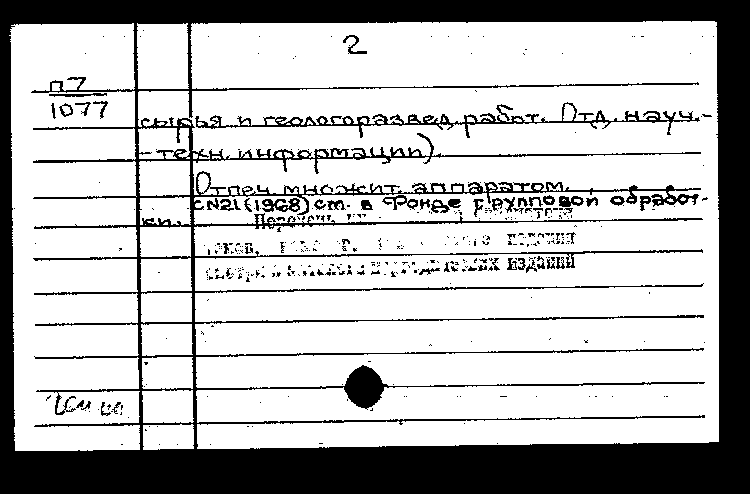 2
П7
1077
сырья и геологоразвед. работ. Отд. науч.-
-техн. информации).
Отпеч. множит. аппаратом.
с №21 (1968) см. в Фонде групповой обработ-
ки.
Перечень
издания
смотри в каталоге периодических изданий